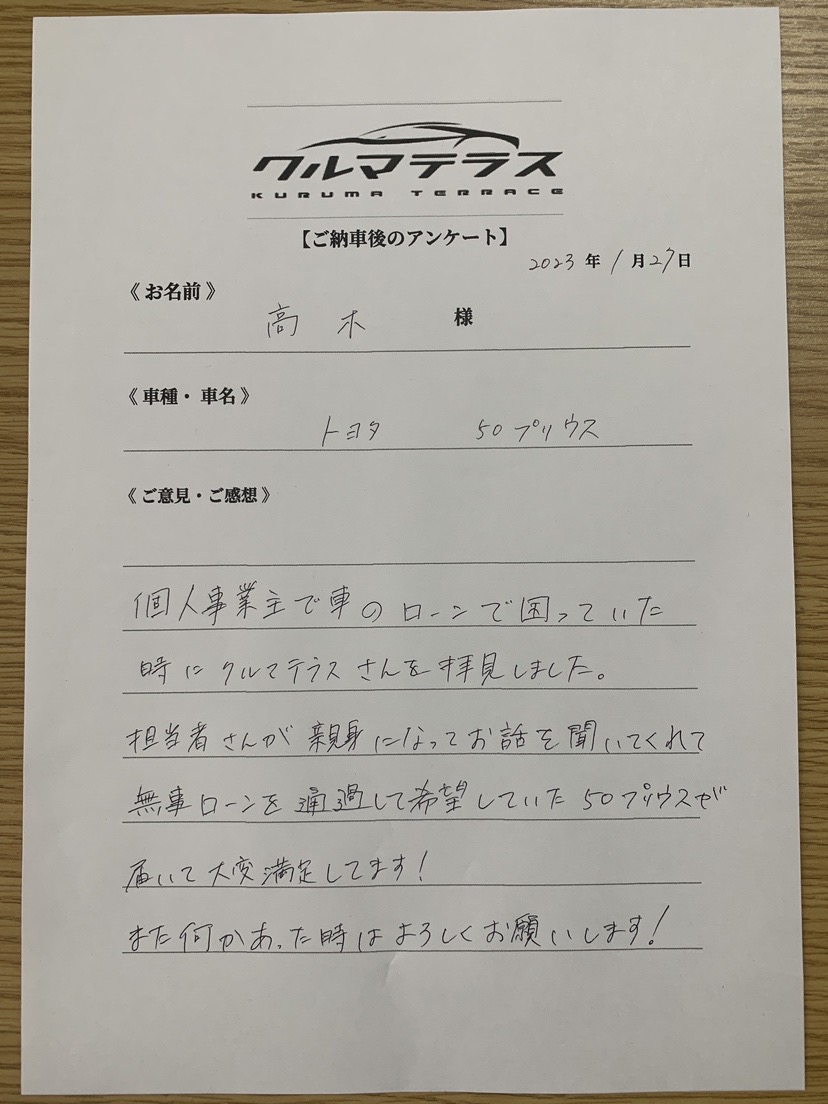 クルマテラス
KURUMA TERRACE
【ご納車後のアンケート】
2023年1月27日
《お名前》
高木 様
《車種・車名》
トヨタ 50プリウス
《ご意見・ご感想》
個人事業主で車のローンで困っていた
時にクルマテラスさんを拝見しました。
担当者さんが親身になってお話を聞いてくれて
無事ローンを通過して希望していた50プリウスが
届いて大変満足してます!
また何かあった時はよろしくお願いします!